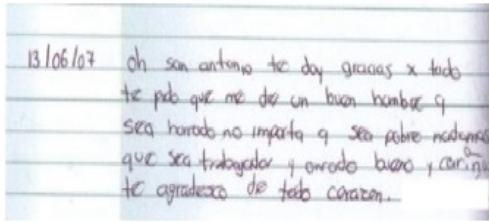 13/06/07 oh san antonio te doy gracias x todo
te pido que me de un buen hombre q
sea honrado no importa q sea pobre
que sea trabajador y onrado bueno y
te agradesco de todo corazon.